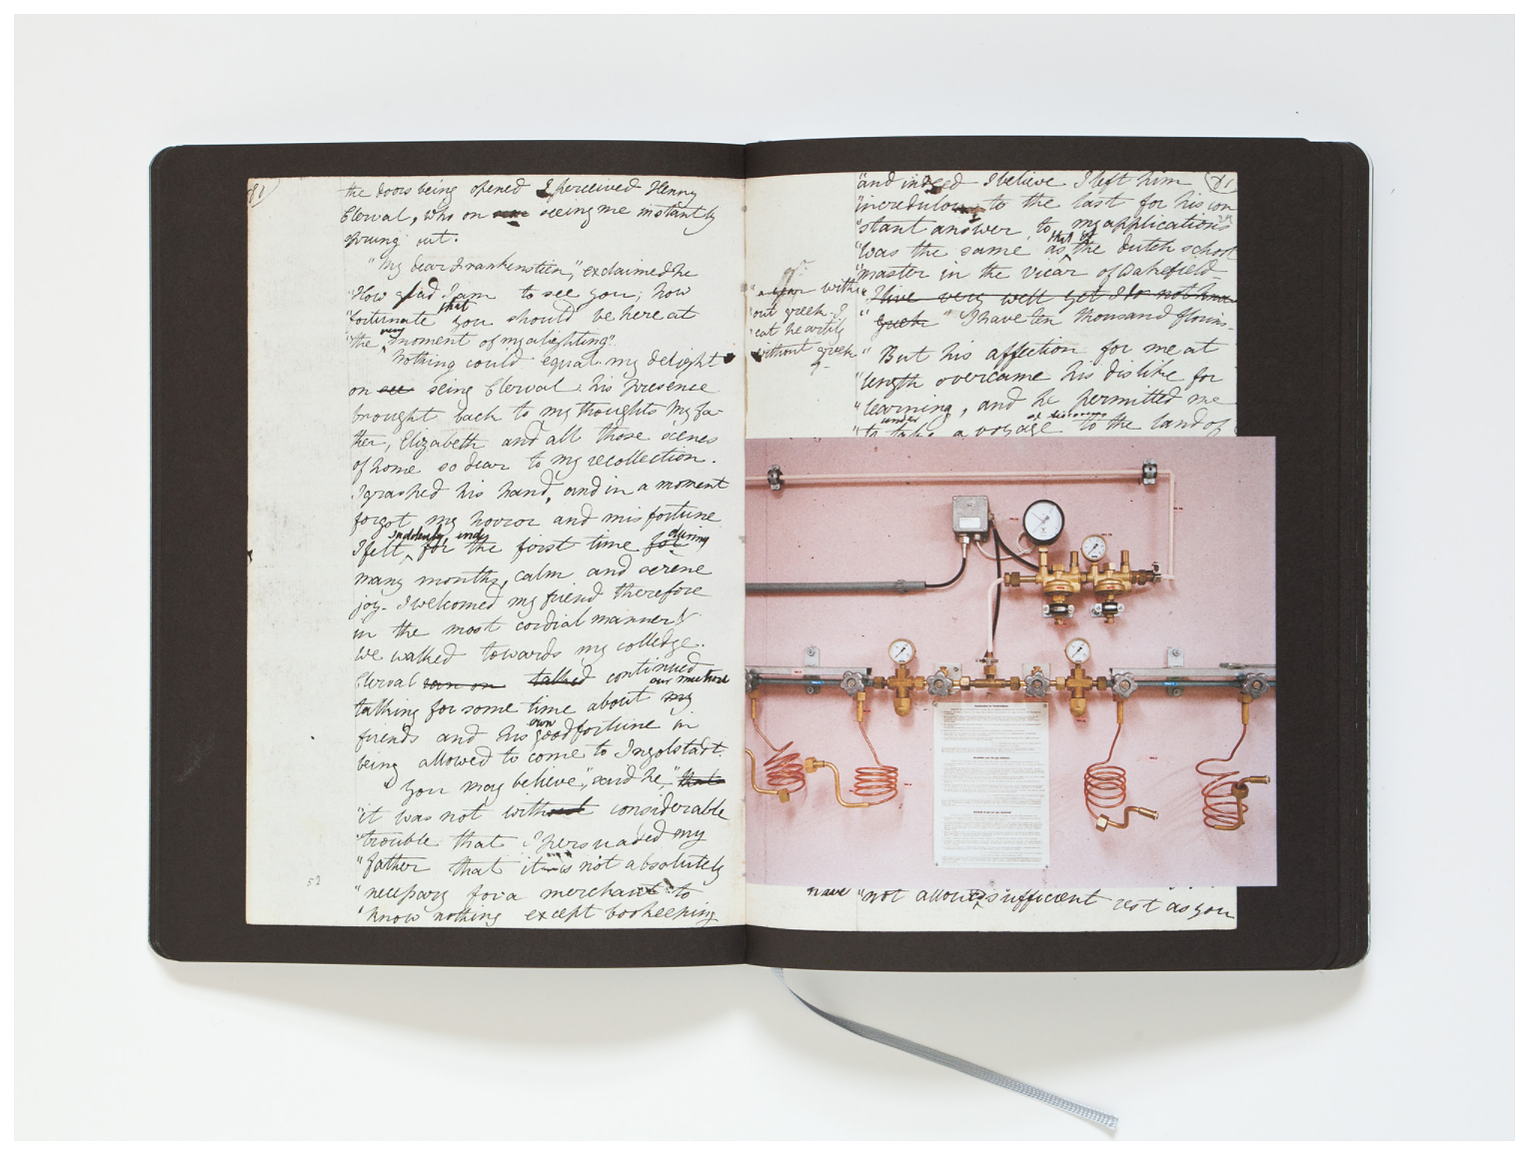 81
the doors being opened I perceived Henry
Clerval, who on seeing me instantly
sprung out.
"My dear Frankenstein", exclaimed he
"How glad I am to see you; how
that
"fortunate you should be here at
very
"the moment of my alighting".
Nothing could equal my delight
on see seing Clerval. his presence
brought back to my thoughts my fa-
ther, Elizabeth and all those scenes
of home so dear to my recollection.
I grasped his hand, and in a moment
forgot my horror and misfortune
suddenly and during
I felt, for the first time for
many months, calm and serene
joy. I welcomed my friend therefore
in the most cordial manner &
we walked towards my colledge.
Clerval ran on talked continued
our mutual
talking for some time about my
friends and his own good fortune in
being allowed to come to Ingolstadt.
You may believe", said he, "that
"it was not without considerable
"trouble that I persuaded my
"father that it was not absolutely
52
"necessary for a merchant to
"know nothing except bookeeping
"and indeed I believe I left him 81
"incredulous to the last for his con
"stant answer to my applications
that of
"was the same as the dutch school
"master in the vicar of Wakefield-
"I live very well yet I do not know
"greek "I have ten thousand florins-
"a year with
"out greek- I
"eat heartily
"without greek
"But his affection for me at
"length overcame his dislike for
"learning, and he permitted me
under of discovery
"to take a voyage to the land of
have "not allowed sufficient rest as you